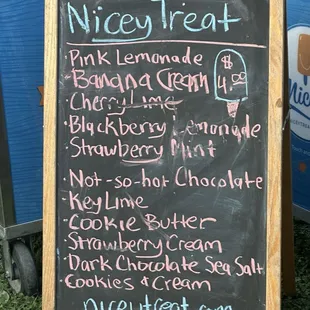 Nicey Treat
Pink Lemonade
Banana Cream
$
4.00
Cherry Lime
Blackberry Lemonade
Strawberry Mint
Not-so-hot Chocolate
Key Lime
Cookie Butter
Strawberry Cream
Dark Chocolate Sea Salt
Cookies & Cream
niceytreat.com